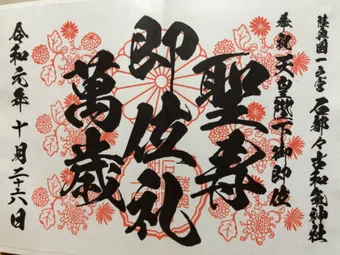 陸奥國一之宮 石都々古和氣神社
奉祝 天皇陛下御即位
聖寿
即位礼
萬歳
令和元年 十月二十六日